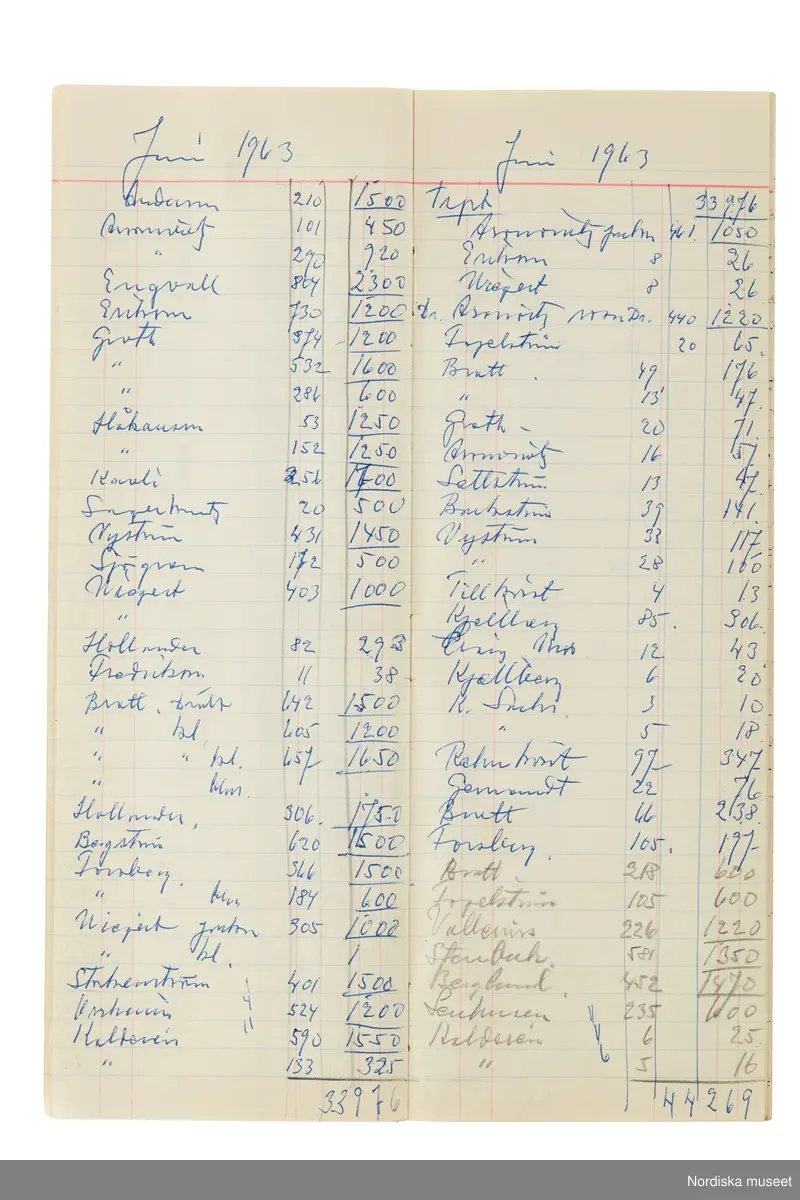 Juni 1963
Anderson 210 1500
Aronowitz 101 450
" 290 920
Engvall 804 2300
Erikson 730 1200
Groth 374 1200
" 532 1600
" 286 600
Håkanson 53 1250
" 152 1250
Kavali 256 1700
20 500
Nyström 431 1450
Sjögren 172 500
Wiegert 403 1000
"
Hollander 82 293
Fredrikson 11 38
Bratt 642 1500
" kl. 605 1200
" " kl. 657 1650
"
Hollander, 306. 1750
Bergström 620 1500
Forsberg. 366 1500
" 184 600
Wiegert 305 1000
" kl. 1
401 1500
524 1200
Kalderén 590 1550
" 133 325
33976
Juni 1963
Trpt 33976
Aronowitz 461. 1050
Erikson 8 26
Wiegert 8 26
Dr. Aronowitz 440 1220
Fogelström 20 65.
Bratt. 49 176
" 13 47.
Groth - 20 71.
Aronowitz 16 57
Sättström 13 47.
39 141.
Nyström 33 117
" 28 100
Tillkvist 4 13
Kjellberg 85. 306.
12 43
Kjellberg 6 20
K. Sachs. 3 10
" 5 18.
Rehnkvist 97 347
22 76
Bratt 66 238.
Forsberg. 105. 197
Bratt. 218 600
Fogelström 105 600
Vallenius 226 1220
Stenbeck. 581 1350
Berglund. 452 1470
235 600
Kalderén 6 25
" 5 16
44269
Nordiska museet